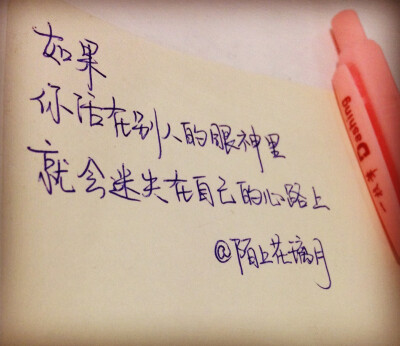 如果
你活在别人的眼神里
就会迷失在自己的心路上
@陌上花璃月
Deaning